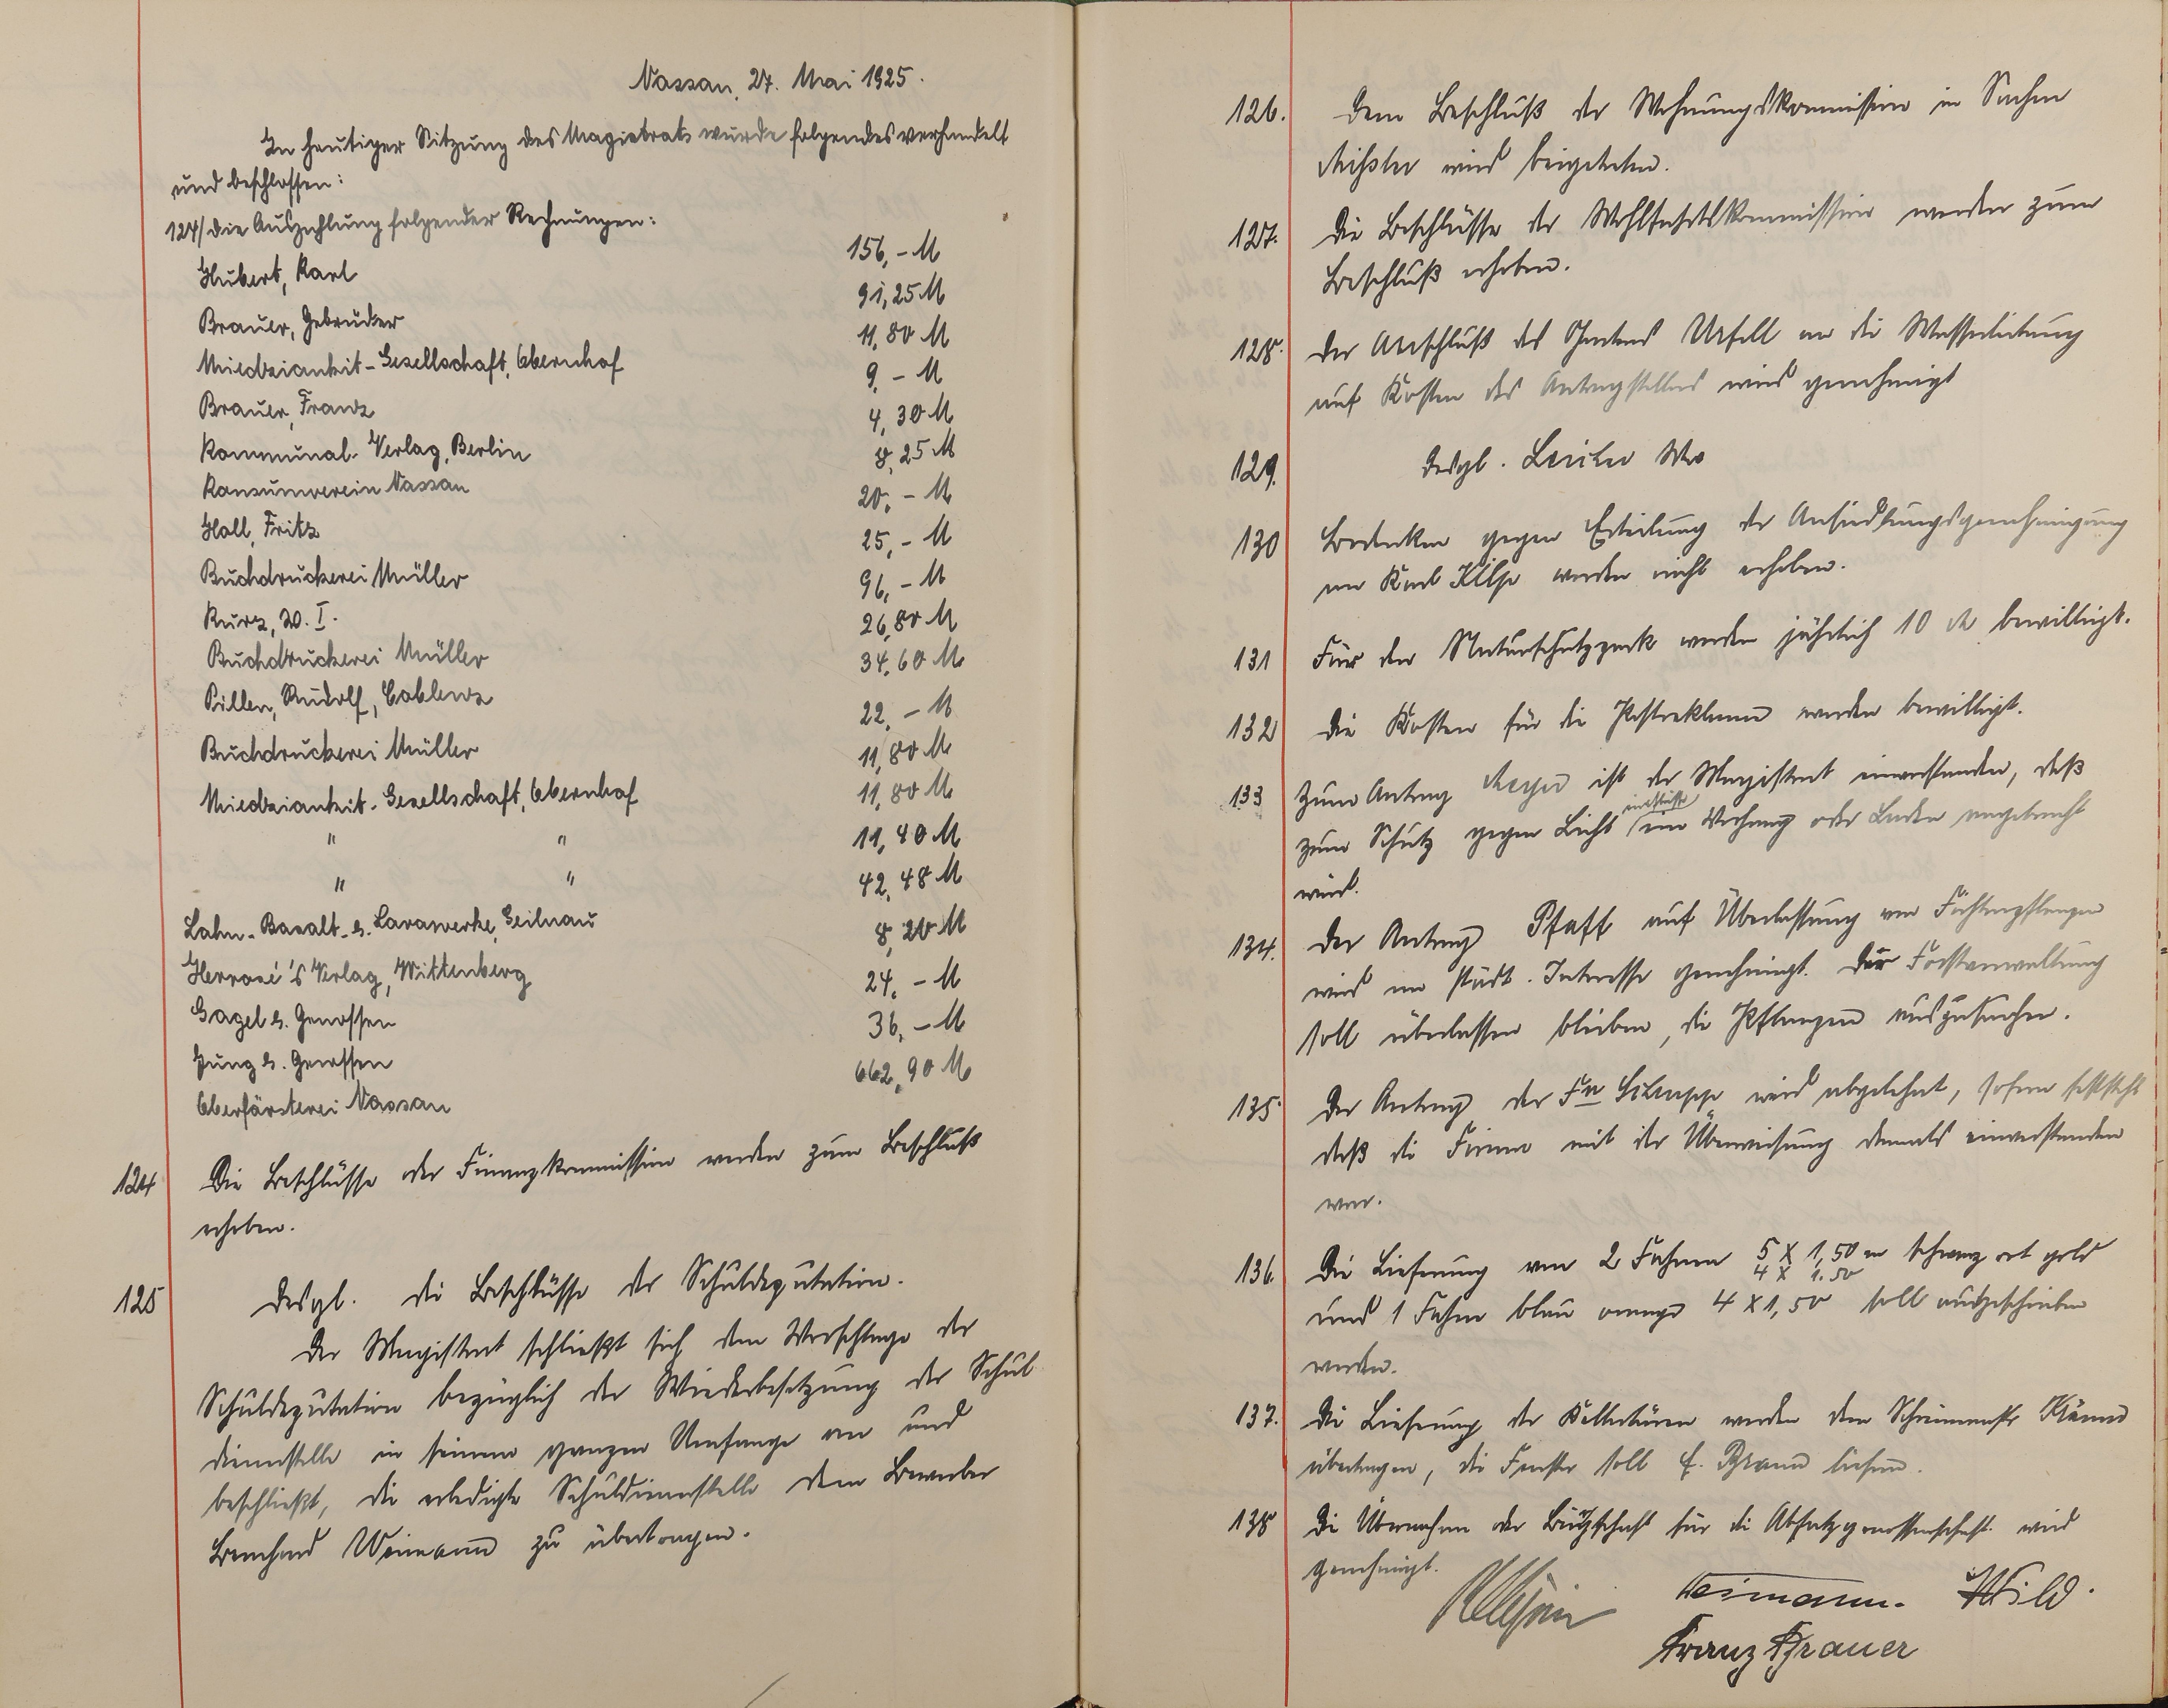 Nassau, 27. Mai 1925.
In heutiger Sitzung des Magistrats wurde folgendes verhandelt
und beschlossen:
124/ die Auszahlung folgender Rechnungen:
Hubert, Karl 156,- M
Brauer, Gebrüder 91,25 M
Miedziankit-Gesellschaft, Obernhof 11,80 M
Brauer, Franz 9,- M
Kommunal-Verlag, Berlin 4,30 M
Konsumverein Nassau 8,25 M
Holl, Fritz 20,- M
Buchdruckerei Müller 25,- M
Kurz, W. I. 96,- M
Buchdruckerei Müller 26,80 M
Piller, Rudolf, Coblenz 34,60 M
Buchdruckerei Müller 22,- M
Miedziankit-Gesellschaft, Obernhof 11,80 M
" " 11,80 M
" " 11,40 M
Lahn-Basalt- u. Lavawerke, Geilnau 42,48 M
Herrosé's Verlag, Wittenberg 8,20 M
Gagel u. Genossen 24,- M
Jung u. Genossen 36,- M
Oberförsterei Nassau 662,90 M
124 Die Beschlüsse der Finanzkommission werden zum Beschluß
erhoben.
125 desgl. die Beschlüsse der Schuldeputation.
Der Magistrat schließt sich dem Vorschlage der
Schuldeputation bezüglich der Wiederbesetzung der Schul
dienerstelle in seinem ganzen Umfange an und
beschließt, die erledigte Schuldienerstelle dem Bewerber
Bernhard Weimann zu übertragen.
126. Dem Beschluß der Wohnungskommission in Sachen
wird beigetreten.
127. Die Beschlüsse der Wohlfahrtskommission werden zum
Beschluß erhoben.
128. Der Anschluß des Gartens Urfell an die Wasserleitung
auf Kosten des Antragstellers wird genehmigt
129. desgl.
130 Bedenken gegen Erteilung der Ansiedlungsgenehmigung
an Karl werden nicht erhoben.
131 Für den Naturschutzpark werden jährlich 10 M bewilligt.
132 Die Kosten für die Postreklame werden bewilligt.
133 Zum Antrag Meyer ist der Magistrat einverstanden, daß
zum Schutz gegen Licht ein Vorhang oder Laden angebracht
wird.
134. Der Antrag Pfaff auf Überlassung von Fichtenpflanzen
wird im städt. Interesse genehmigt. Der Forstverwaltung
soll überlassen bleiben, die Pflanzen auszusuchen.
135. Der Antrag der Fa Schrupp wird abgelehnt, sofern feststeht
daß die Firma mit der Überweisung damals einverstanden
war.
136. Die Lieferung von 2 Fahnen 5 X 1,50 m schwarz rot gold
4 X 1.50
und 1 Fahne blau orange 4 X 1,50 soll ausgeschrieben
werden.
137. Die Lieferung der Kellertüren werden dem Schreinermstr.
übertragen, die Fenster soll F. Braun liefern.
138 Die Übernahme der Bürgschaft für die Absatzgenossenschaft wird
genehmigt.
Weimann. Wild.
Franz Brauer